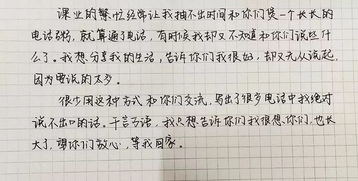 课业的繁忙经常让我抽不出时间和你们煲一个长长的
电话粥，就算通了电话，有时候我却又不知和你们说些什
么了。我想分享我的生活，告诉你们我很好，却又无从说起，
因为要说的太多。
很少用这种方式和你们交流，写出了很多电话中我绝对
说不出口的话。千言万语，我只想告诉你们我很想你们，也长
大了，望你们放心，等我回家。